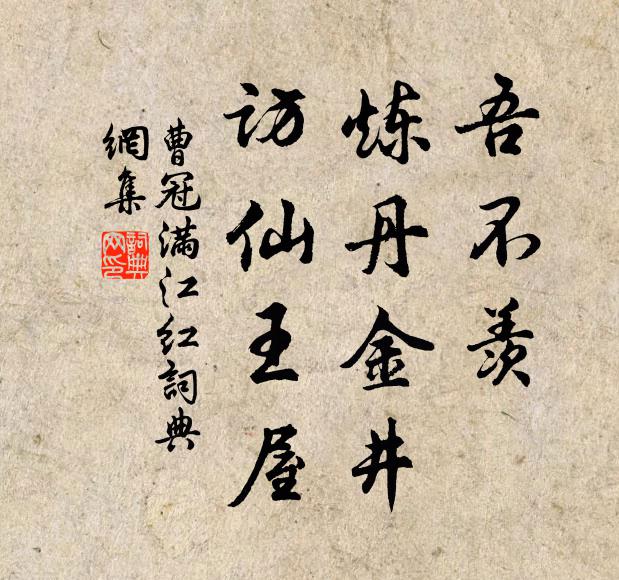 吾不羡
炼丹金井
访仙王屋
曹冠满江红詞典
網集
詞典
网印